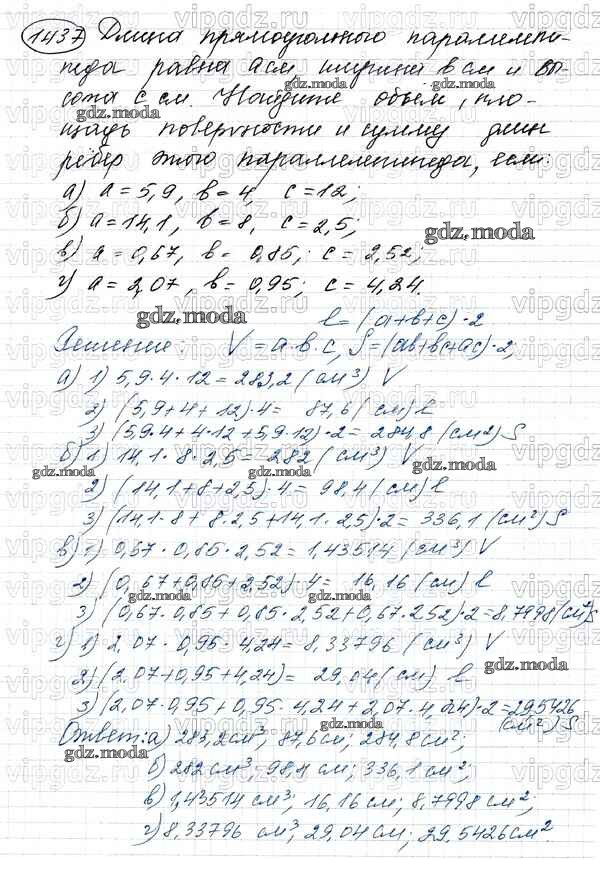 1437 Длина прямоугольного параллелепи-
педа равна a см, ширина b см и вы-
сота c см. Найдите объем, пло-
щадь поверхности и сумму длин
ребер этого параллелепипеда, если:
а) a = 5,9, b = 4, c = 12;
б) a = 14,1, b = 8, c = 2,5;
в) a = 0,67, b = 0,85; c = 2,52;
г) a = 2,07, b = 0,95; c = 4,24.
l = (a+b+c) · 2
Решение: V = a·b·c, S = (ab+bc+ac)·2,
а) 1) 5,9·4·12 = 283,2 (см³) V
2) (5,9+4+12)·4 = 87,6 (см) l
3) (5,9·4+4·12+5,9·12)·2 = 284,8 (см2) S
б) 1) 14,1·8·2,5 = 282 (см³) V
2) (14,1+8+2,5)·4 = 98,4 (см) l
3) (14,1·8+8·2,5+14,1·2,5)·2 = 336,1 (см²) S
в) 1) 0,67·0,85·2,52 = 1,43514 (см³) V
2) (0,67+0,85+2,52)·4 = 16,16 (см) l
3) (0,67·0,85+0,85·2,52+0,67·2,52)·2 = 8,7998 (см²) S
г) 1) 2,07·0,95·4,24 = 8,33796 (см³) V
2) (2,07+0,95+4,24) = 29,04 (см) l
3) (2,07·0,95+0,95·4,24+2,07·4,24)·2 = 29,5426
(см²) S
Ответ: а) 283,2 см³; 87,6 см; 284,8 см²;
б) 282 см³; 98,4 см; 336,1 см²;
в) 1,43514 см³; 16,16 см; 8,7998 см²;
г) 8,33796 см³; 29,04 см; 29,5426 см².
vipgdz.ru
gdz.moda